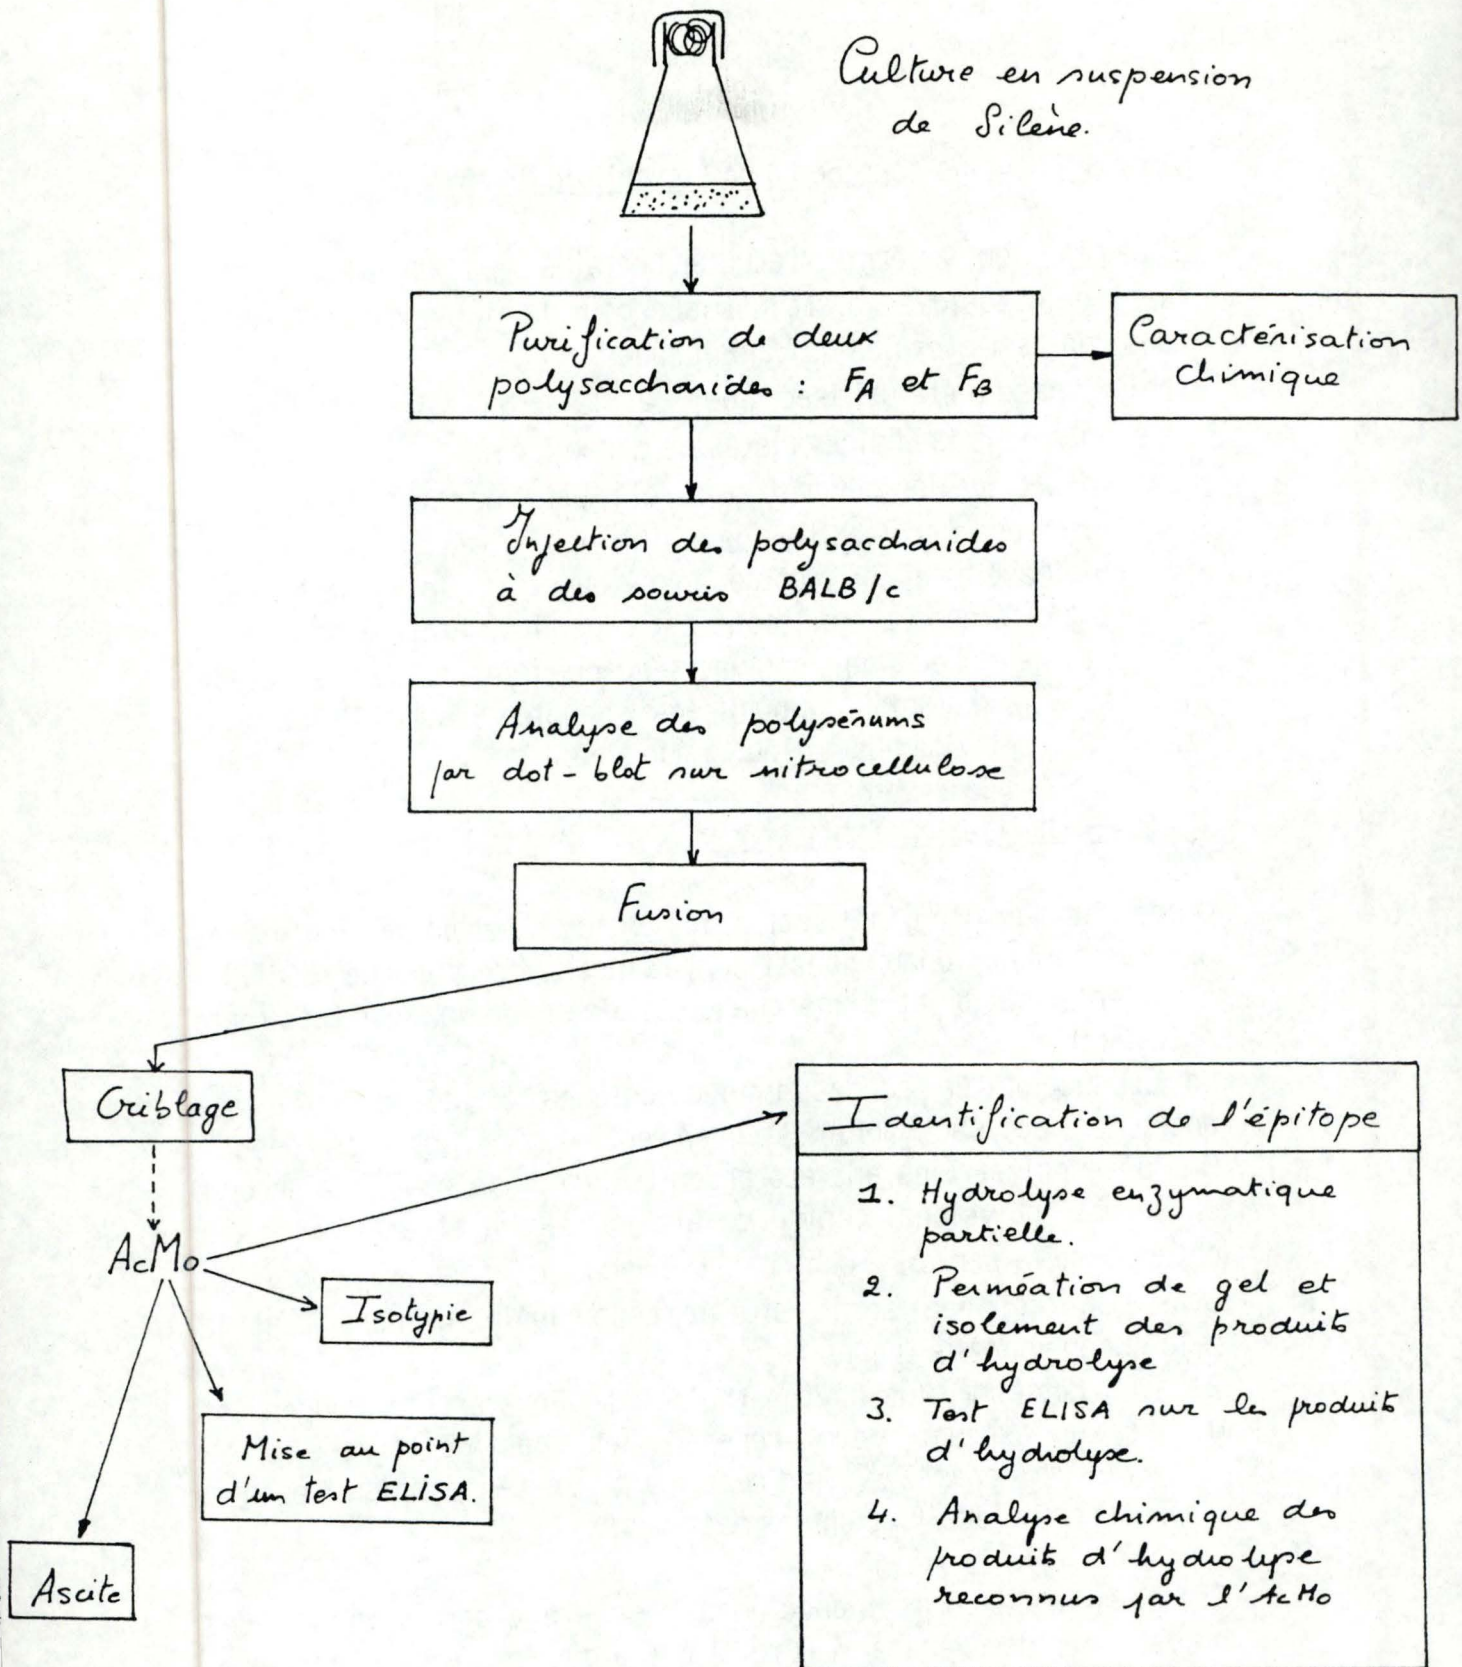 Culture en suspension
de Silène.
Purification de deux
polysaccharides : FA et FB
Caractérisation
chimique
Injection des polysaccharides
à des souris BALB/c
Analyse des polysérums
par dot-blot sur nitrocellulose
Fusion
Criblage
AcMo
Isotypie
Mise au point
d'un test ELISA.
Ascite
Identification de l'épitope
1. Hydrolyse enzymatique
partielle.
2. Perméation de gel et
isolement des produits
d'hydrolyse
3. Test ELISA sur les produits
d'hydrolyse.
4. Analyse chimique des
produits d'hydrolyse
reconnus par l'AcMo